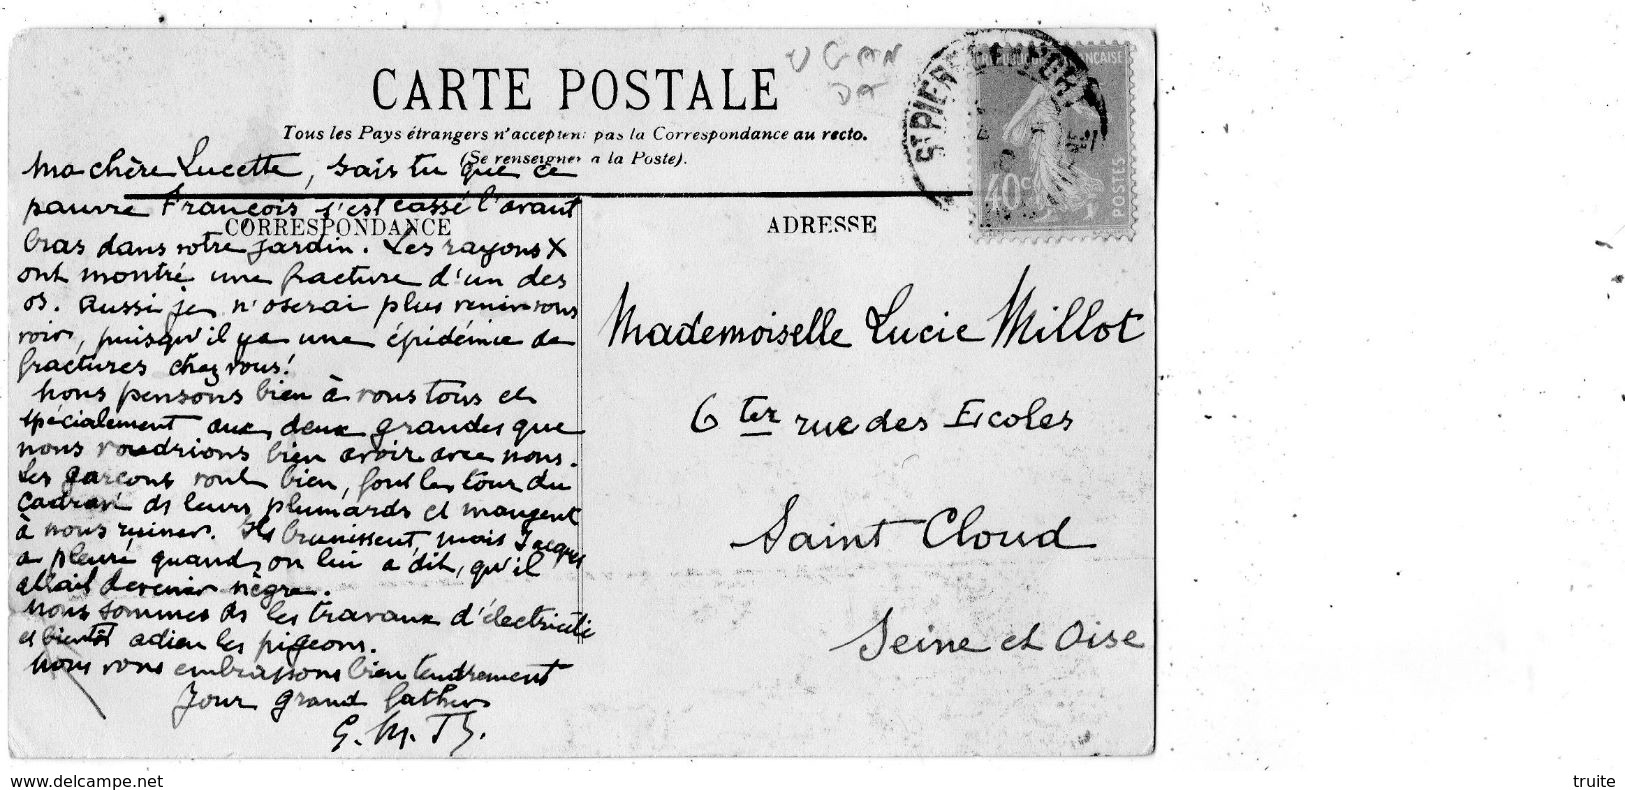 CARTE POSTALE
UGAN
DA
Tous les Pays étrangers n'acceptent pas la Correspondance au recto.
(Se renseigner a la Poste).
ST PIERRE
FRANÇAISE
40c
POSTES
CORRESPONDANCE
ADRESSE
Ma chère Lucette, sais tu que ce
pauvre François s'est cassé l'avant
bras dans votre jardin. Les rayons X
ont montré une fracture d'un des
os. Aussi je n'oserai plus venir vous
voir, puisqu'il y a une épidémie de
fractures chez vous!
Nous pensons bien à vous tous et
spécialement aux deux grandes que
nous voudrions bien avoir avec nous.
Les garçons vont bien, font le tour du
cadran ds leurs plumards et mangent
à nous ruiner. Ils brunissent, mais Jacques
a pleuré quand on lui a dit, qu'il
allait devenir nègre.
Nous sommes ds les travaux d'électricité
et bientôt adieu les pigeons.
Nous vous embrassons bien tendrement
Your grand father
G. M. Th.
Mademoiselle Lucie Millot
6 ter rue des Ecoles
Saint Cloud
Seine et Oise
www.delcampe.net
truite